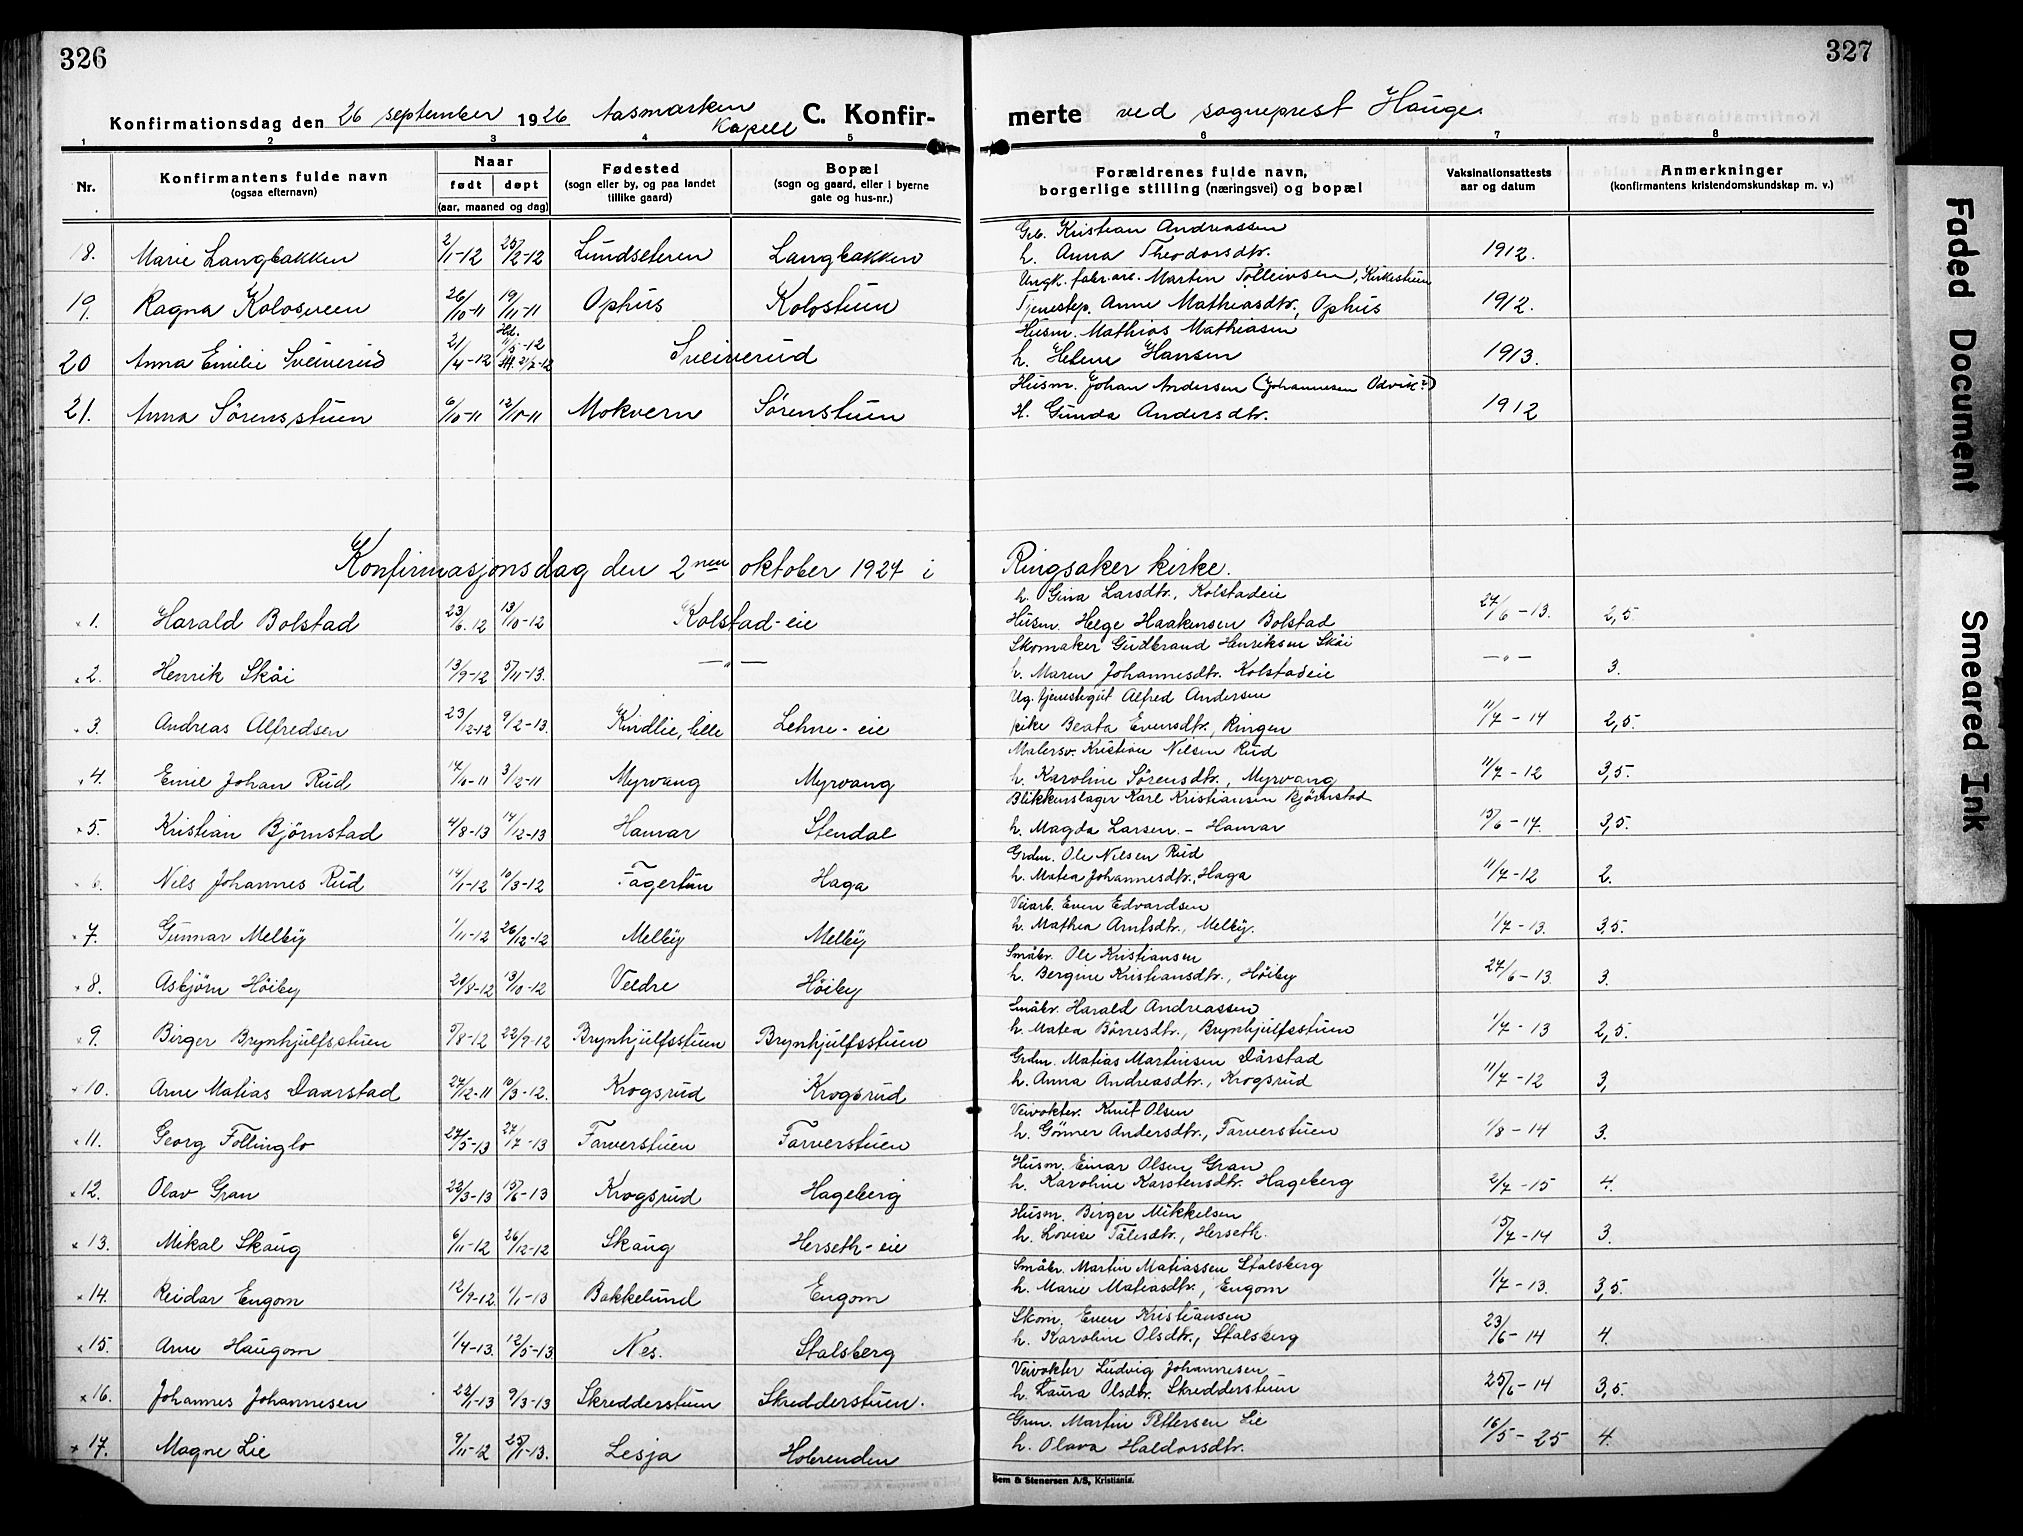 326
327
Konfirmationsdag den 26 september 1926 Aasmarken Kapell C. Konfirmerte ved sogneprest Hauge.
1 2 3 4 5 6 7 8
Nr. Konfirmantens fulde navn (ogsaa efternavn) Naar født døpt (aar, maaned og dag) Fødested (sogn eller by, og paa landet tillike gaard) Bopæl (sogn og gaard, eller i byerne gate og hus-nr.) Forældrenes fulde navn, borgerlige stilling (næringsvei) og bopæl Vaksinationsattests aar og datum Anmerkninger (konfirmantens kristendomskundskap m. v.)
18. Marie Langbakken 2/1-12 25/2-12 Lundseteren Langbakken Grb. Kristian Andreassen
h. Anna Theodorsdtr. 1912.
19. Ragna Kolosveen 26/10-11 19/11-11 Ophus Kolostuen Ungk. fabr.arb. Martin Tolleivsen, Kirkestuen
Tjenestep. Anne Mathiasdtr., Ophus 1912.
20 Anna Emilie Sveiverud 21/4-12 Hd. 11/5-12 Sveiverud Husm. Mathias Mathiasen
h. Helene Hansen 1913.
21. Anna Sørensstuen 6/10-11 12/10-11 Mokvern Sørenstuen Husm. Johan Andersen (Johannesen Odvik?)
H. Gunda Andersdtr. 1912
Konfirmasjonsdag den 2nen oktober 1927 i Ringsaker kirke.
×1. Harald Bolstad 23/6-12 13/10-12 Kolstad-eie h. Gina Larsdtr., Kolstadeie
Husm. Helge Haakensen Bolstad 27/6-13. 2,5.
×2. Henrik Skåi 13/9-12 5/11-13. —„— Skomaker Gudbrand Henriksen Skåi
h. Maren Johannesdtr. Kolstadeie —„— 3.
×3. Andreas Alfredsen 23/12-12 9/2-13. Kindlie, lille Lehne-eie Ug. tjenestegut Alfred Andersen
pike Beata Evensdtr., Ringen 11/7-14 2,5.
×4. Emil Johan Rud 17/10-11 3/12-11 Myrvang Myrvang Malersv. Kristian Nilsen Rud
h. Karoline Sørensdtr., Myrvang 11/7-12 3,5.
×5. Kristian Bjørnstad 4/8-13 14/12-13 Hamar Stendal Blikkenslager Karl Kristiansen Bjørnstad
h. Magda Larsen. - Hamar 15/6-17. 3,5.
×6. Nils Johannes Rud 14/1-12 10/3-12 Fagertun Haga Grdm. Ole Nilsen Rud
h. Matea Johannesdtr., Haga 11/7-12 2.
×7. Gunnar Melby 1/11-12 26/12-12 Melby Melby Veiarb. Even Edvardsen
h. Mathea Arntsdtr., Melby. 1/7-13. 3,5.
×8. Asbjørn Høiby 20/8-12 13/10-12 Veldre Høiby Småbr. Ole Kristiansen
h. Bergine Kristiansdtr., Høiby 27/6-13 3.
×9. Birger Brynhjulfsstuen 5/8-12 22/9-12 Brynhjulfsstuen Brynhjulfsstuen Småbr. Harald Andreassen
h. Matea Børresdtr., Brynhjulfsstuen 1/7-13 2,5.
×10. Arne Matias Daarstad 27/12-11 10/3-12. Krogsrud Krogsrud Grdm. Matias Martinsen Dårstad
h. Anna Andreasdtr., Krogsrud 11/7-12 3,
×11. Georg Follinglo 27/5-13 27/7-13 Farverstuen Farverstuen Veivokter. Knut Olsen
h. Gønner Andersdtr., Farverstuen 1/8-14 3.
×12. Olav Gran 22/3-13 15/6-13 Krogsrud Hageberg Husm. Einar Olsen Gran
h. Karoline Karstensdtr. Hageberg 2/7-15 4.
×13. Mikal Skaug 6/11-12 26/12-12 Skaug Herseth-eie Husm. Birger Mikkelsen
h. Lovise Tålesdtr., Herseth. 15/7-14 3.
×14. Reidar Engom 12/9-12. 1/1-13 Bakkelund Engom Småbr. Martin Matiassen Stalsberg
h. Marie Matiasdtr., Engom 1/7-13. 3,5.
×15. Arne Haugom 1/4-13. 12/5-13. Nes. Stalsberg Skom. Even Kristiansen
h. Karoline Olsdtr., Stalsberg 23/6-14 4.
×16. Johannes Johannesen 22/1-13 9/3-13 Skredderstuen Skredderstuen. Veivokter Ludvig Johannesen
h. Laura Olsdtr. Skredderstuen 25/6-14 3,5.
×17. Magne Lie 9/11-12 25/1-13. Lesja Holrenden Grm. Martin Pettersen Lie
h. Olava Haldorsdtr. 16/5-25 4.
Sem & Stenersen A/S, Kristiania.
Faded Document
Smeared Ink